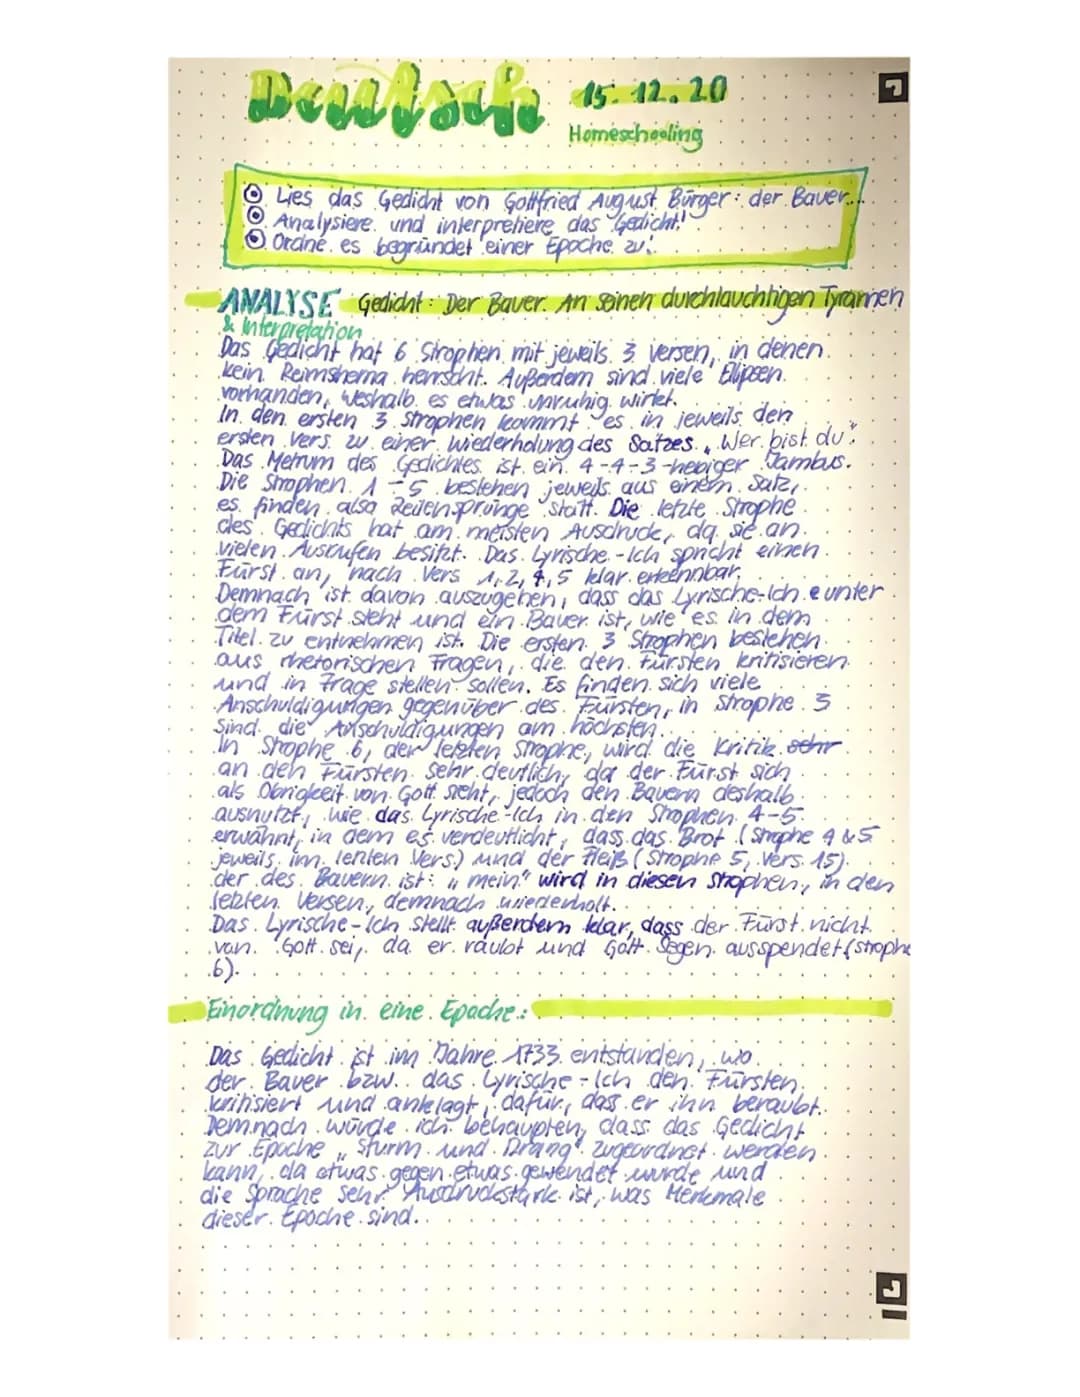 Deutsch 15.12.20
Homeschooling
Lies das Gedicht von Gottfried August Bürger: der Bauer...
Analysiere und interpretiere das Gedicht!
Ordne es begründet einer Epoche zu!
ANALYSE Gedicht: Der Bauer. An seinen durchlauchtigen Tyrannen
& Interpretation
Das Gedicht hat 6 Strophen mit jeweils 3 Versen, in denen
kein Reimshema herrscht. Außerdem sind viele Ellipsen
vorhanden, weshalb es etwas unruhig wirkt.
In den ersten 3 Strophen kommt es in jeweils den
ersten Vers zu einer Wiederholung des Satzes „Wer bist du".
Das Metrum des Gedichtes ist ein 4-4-3-hebiger Jambus.
Die Strophen 1-5 bestehen jeweils aus einem Satz,
es finden also Zeilensprünge statt. Die letzte Strophe
des Gedichts hat am meisten Ausdruck, da sie an
vielen Ausrufen besitzt. Das Lyrische-Ich spricht einen
Fürst an, nach Vers 1,2,4,5 klar erkennbar.
Demnach ist davon auszugehen, dass das Lyrische-Ich unter
dem Fürst steht und ein Bauer ist, wie es in dem
Titel zu entnehmen ist. Die ersten 3 Strophen bestehen
aus rhetorischen Fragen, die den Fürsten kritisieren
und in Frage stellen sollen. Es finden sich viele
Anschuldigungen gegenüber des Fürsten, in Strophe 3
Sind die Anschuldigungen am höchsten.
In Strophe 6, der letzten Strophe, wird die Kritik sehr
an den Fürsten sehr deutlich, da der Fürst sich
als Obrigkeit von Gott sieht, jedoch den Bauern deshalb
ausnutzt, wie das Lyrische-Ich in den Strophen 4-5
erwähnt, in dem es verdeutlicht, dass das Brot (Strophe 4 & 5
jeweils im letzten Vers) und der Fleiß (Strophe 5, Vers 15)
der des Bauern ist: „mein" wird in diesen Strophen, in den
letzten Versen, demnach wiederholt.
Das Lyrische-Ich stellt außerdem klar, dass der Fürst nicht
von Gott sei, da er raubt und Gott Segen ausspendet (strophe
6).
Einordnung in eine Epoche:
Das Gedicht ist im Jahre 1733 entstanden, wo
der Bauer bzw. das Lyrische-Ich den Fürsten
kritisiert und anklagt, dafür, dass er ihn beraubt.
Demnach würde ich behaupten, dass das Gedicht
zur Epoche „Sturm und Drang" zugeordnet werden
kann, da etwas gegen etwas gewendet wurde und
die Sprache sehr Ausdruckstark ist, was Merkmale
dieser Epoche sind.